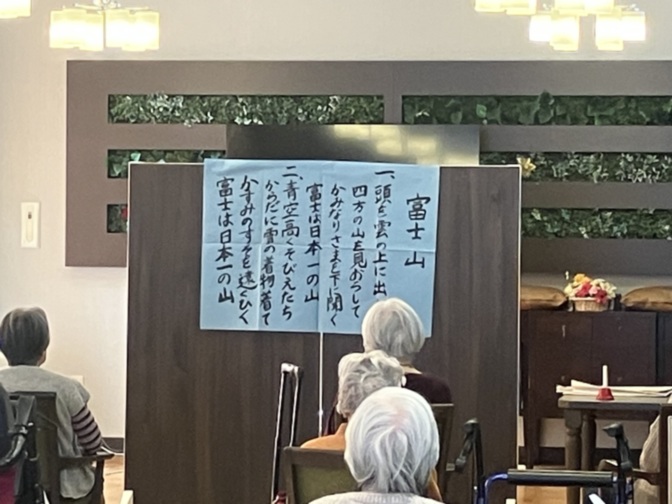 富士山
一、頭を雲の上に出
四方の山を見おろして
かみなりさまを下に聞く
富士は日本一の山
二、青空高くそびえたち
からだに雪の着物着て
かすみのすそを遠くひく
富士は日本一の山